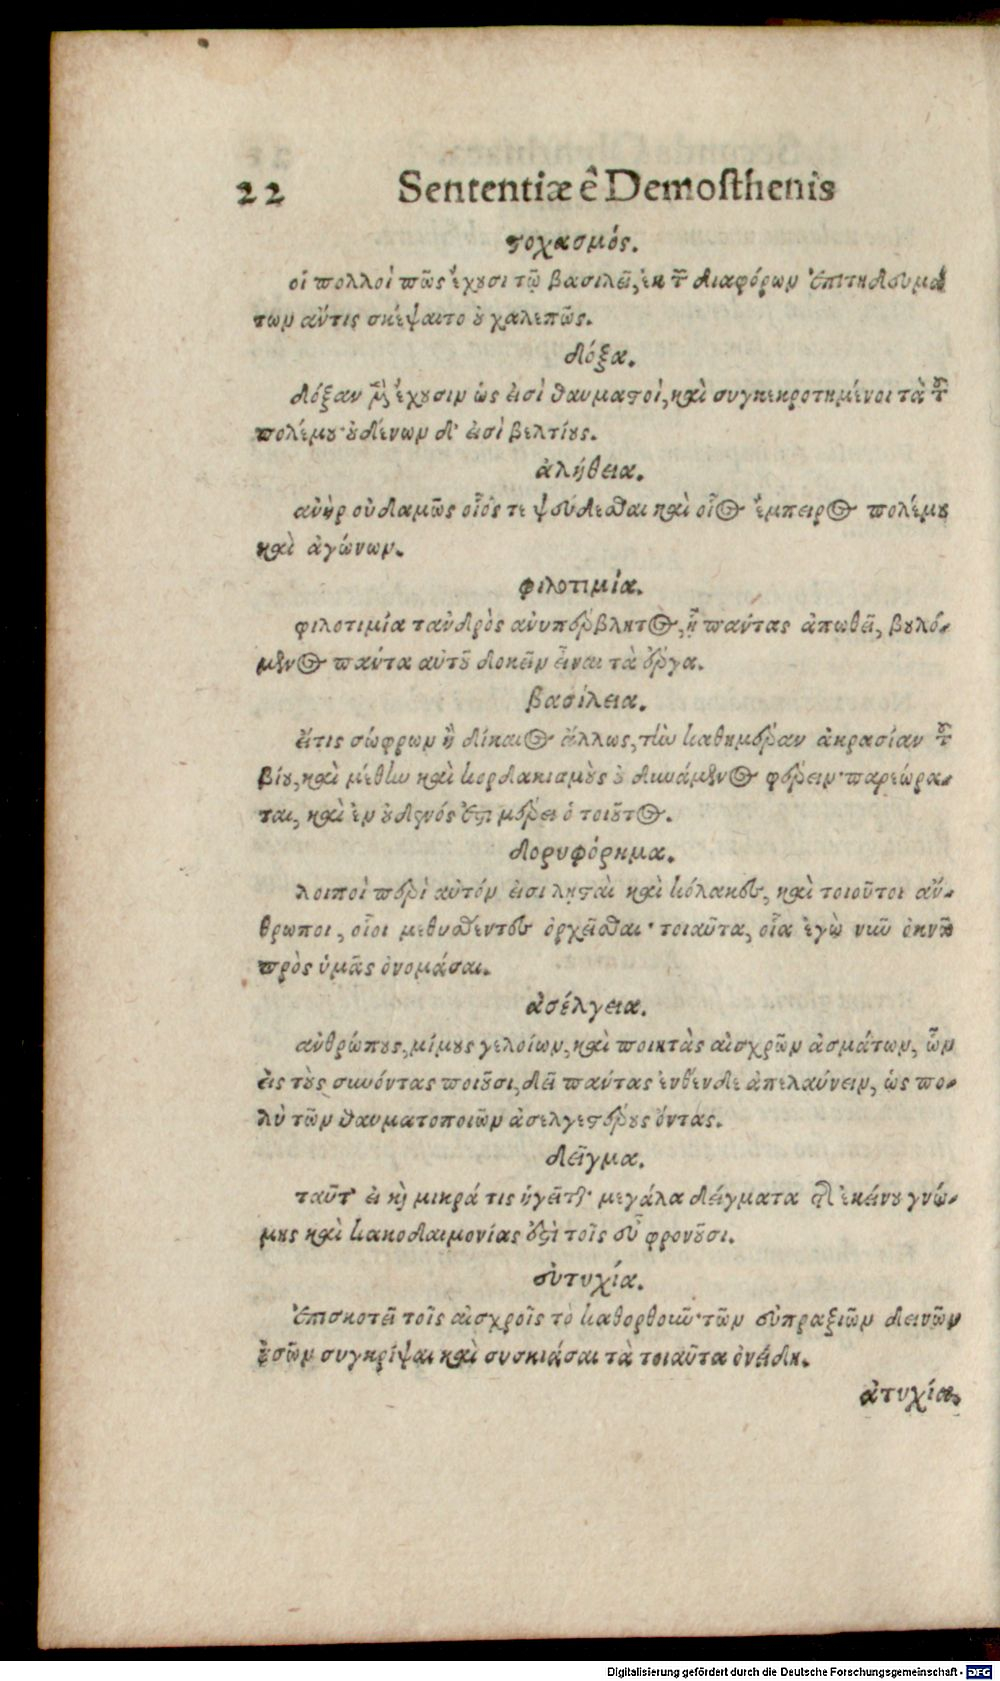 22 Sententiæ ê Demosthenis
στοχασμός.
οἱ πολλοὶ πῶς ἔχουσι τῷ βασιλεῖ, ἐκ τῶν διαφόρων ἐπιτηδευμά
των ἄντις σκέψαιτο οὐ χαλεπῶς.
δόξα.
δόξαν μὲν ἔχουσιν ὡς εἰσὶ θαυμαστοὶ, καὶ συγκεκροτημένοι τὰ τοῦ
πολέμου· οὐδένων δ' εἰσὶ βελτίους.
ἀλήθεια.
ἀνὴρ οὐδαμῶς οἷός τε ψεύδεσθαι καὶ οἷος ἔμπειρος πολέμου
καὶ ἀγώνων.
φιλοτιμία.
φιλοτιμία τἀνδρὸς ἀνυπέρβλητος, ᾗ πάντας ἀπωθεῖ, βουλό-
μενος πάντα αὐτοῦ δοκεῖν εἶναι τὰ ἔργα.
βασίλεια.
εἴτις σώφρων ἢ δίκαιος ἄλλως, τὴν καθημέραν ἀκρασίαν τοῦ
βίου, καὶ μέθην καὶ κορδακισμοὺς οὐ δυνάμενος φέρειν· παρεώρα-
ται, καὶ ἐν οὐδενός ἐστι μέρει ὁ τοιοῦτος.
δορυφόρημα.
λοιποὶ περὶ αὐτόν εἰσι λῃσταὶ καὶ κόλακες, καὶ τοιοῦτοι ἄν-
θρωποι, οἷοι μεθυσθέντες ὀρχεῖσθαι· τοιαῦτα, οἷα ἐγὼ νῦν ὀκνῶ
πρὸς ὑμᾶς ὀνομάσαι.
ἀσέλγεια.
ἀνθρώπους, μίμους γελοίων, καὶ ποιητὰς αἰσχρῶν ἀσμάτων, ὧν
εἰς τοὺς συνόντας ποιοῦσι, δεῖ πάντας ἐνθένδε ἀπελαύνειν, ὡς πο-
λὺ τῶν θαυματοποιῶν ἀσελγεστέρους ὄντας.
δεῖγμα.
ταῦτ' εἰ καὶ μικρά τις ἡγεῖται· μεγάλα δείγματα τῆς ἐκείνου γνώ-
μης καὶ κακοδαιμονίας ἐστὶ τοῖς εὖ φρονοῦσι.
εὐτυχία.
ἐπισκοτεῖ τοῖς αἰσχροῖς τὸ κατορθοῦν· τῶν εὐπραξιῶν δεινῶν
ἐσῶν συγκρύψαι καὶ συσκιάσαι τὰ τοιαῦτα ὀνείδη.
ἀτυχία.
Digitalisierung gefördert durch die Deutsche Forschungsgemeinschaft - DFG